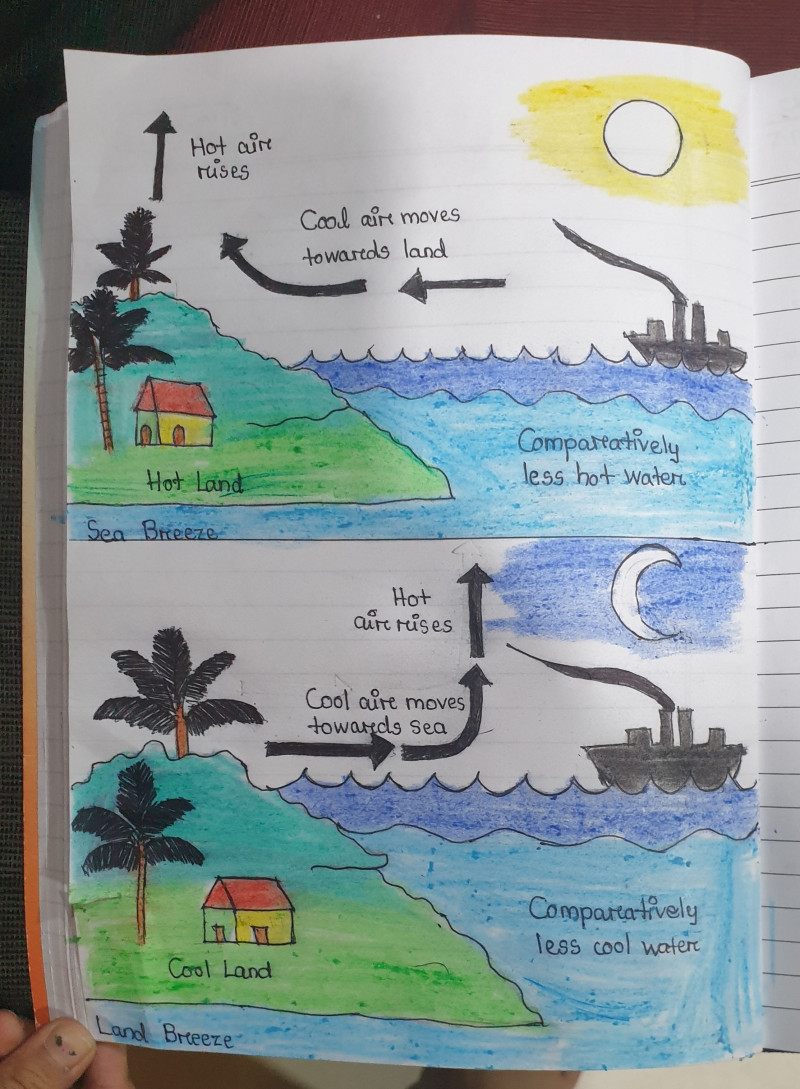 Hot air
rises
Cool air moves
towards land
Comparatively
less hot water
Hot Land
Sea Breeze
Hot
air rises
Cool air moves
towards sea
Comparatively
less cool water
Cool Land
Land Breeze